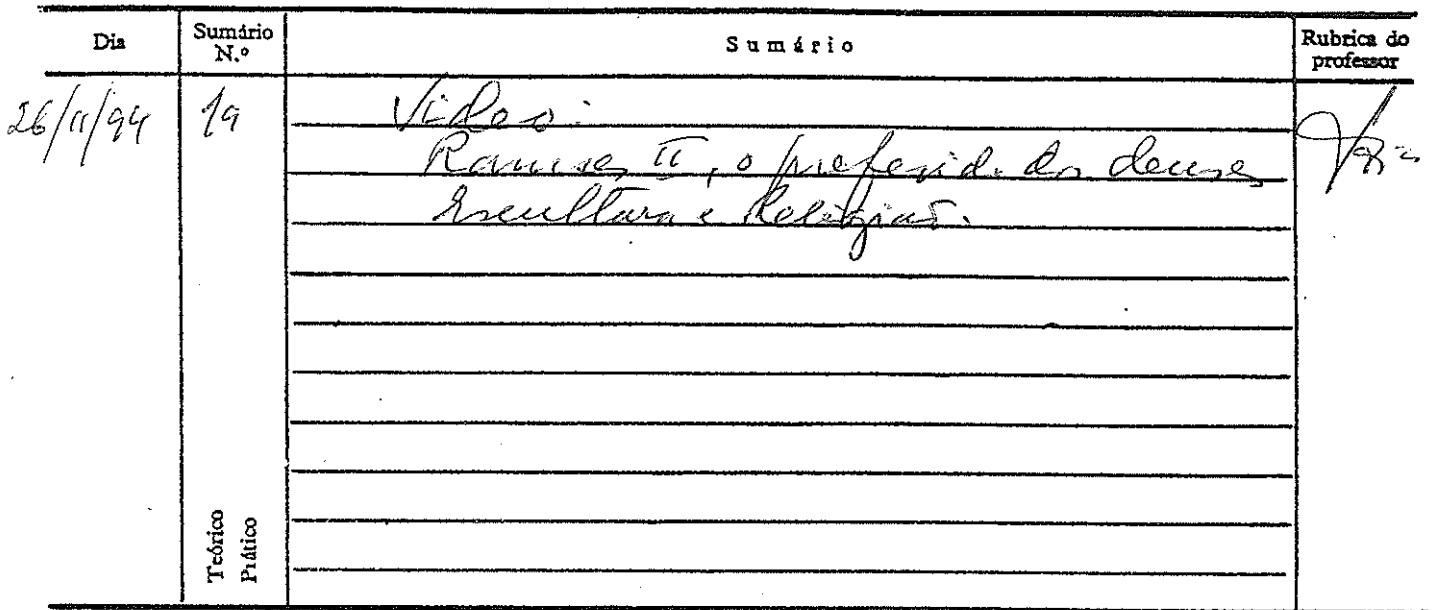 Dia Sumário N.º Sumário Rubrica do professor
26/11/94 19 Vídeo:
Ramses II, o preferido dos deuses
Escultura e Religião.
Teórico
Prático